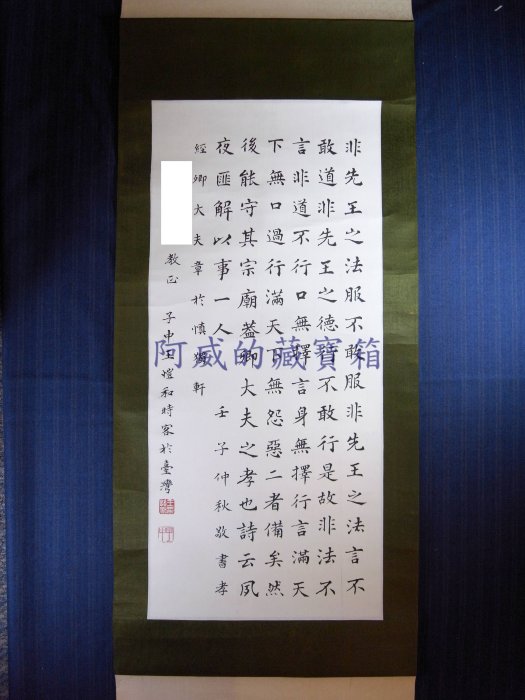 非先王之法服不敢服非先王之法言不
敢道非先王之德行不敢行是故非法不
言非道不行口無擇言身無擇行言滿天
下無口過行滿天下無怨惡二者備矣然
後能守其宗廟蓋卿大夫之孝也詩云夙
夜匪解以事一人 壬子仲秋敬書孝
經卿大夫章於慎獨軒
教正 子申王愷和時客於臺灣
阿威的藏寶箱